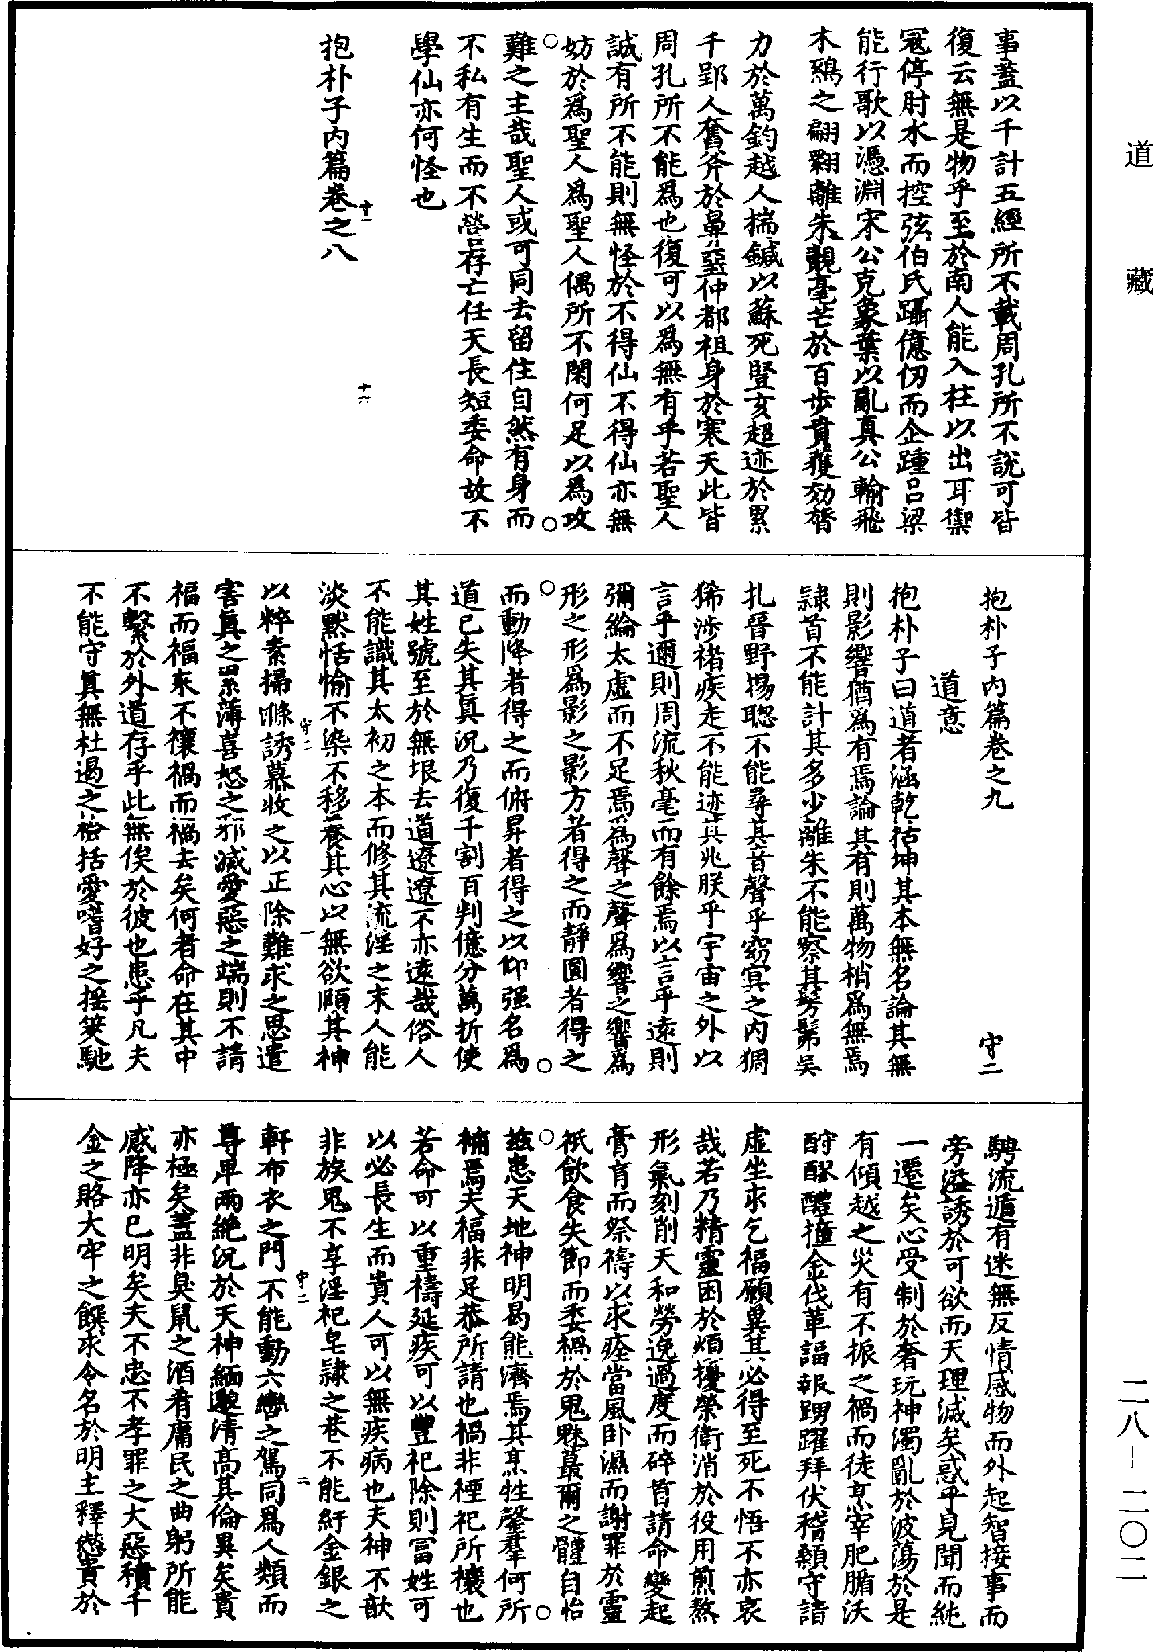 道藏
事蓋以千計五經所不載周孔所不說可皆
復云無是物乎至於南人能入柱以出耳禦
寇停肘水而控弦伯氏躡億仞而企踵呂梁
能行歌以憑淵宋公克象葉以亂真公輸飛
木鷄之翩翾離朱覿毫芒於百步賁獲効膂
力於萬鈞越人揣鍼以蘇死豎亥超迹於累
千郢人奮斧於鼻堊仲都袒身於寒天此皆
周孔所不能爲也復可以爲無有乎若聖人
誠有所不能則無怪於不得仙不得仙亦無
妨於爲聖人爲聖人偶所不閑何足以爲攻
難之主哉聖人或可同去留任自然有身而
不私有生而不營存亡任天長短委命故不
學仙亦何怪也
十一
十六
抱朴子內篇卷之八
抱朴子內篇卷之九
守二
道意
抱朴子曰道者涵乾括坤其本無名論其無
則影響猶爲有焉論其有則萬物稍爲無焉
隸首不能計其多少離朱不能察其髣髴吳
扎晉野揚聰不能尋其音聲乎窈冥之內猢
狶涉禇疾走不能迹其兆朕乎宇宙之外以
言乎邇則周流秋毫而有餘焉以言乎遠則
彌綸太虛而不足焉爲聲之聲爲響之響爲
形之形爲影之影方者得之而靜圓者得之
而動降者得之而俯昇者得之以仰强名爲
道已失其真況乃復千割百判億分萬折使
其姓號至於無垠去道遼遼不亦遠哉俗人
不能識其太初之本而修其流淫之末人能
淡默恬愉不染不移養其心以無欲頤其神
守二
一
以粹素掃滌誘慕收之以正除難求之思遣
害真之累薄喜怒之邪滅愛惡之端則不請
福而福來不禳禍而禍去矣何者命在其中
不繫於外道存乎此無俟於彼也患乎凡夫
不能守真無杜遏之檢括愛嗜好之搖奨馳
騁流遁有迷無反情感物而外起智接事而
旁溢誘於可欲而天理滅矣惑乎見聞而純
一遷矣心受制於奢玩神濁亂於波蕩於是
有傾越之災有不振之禍而徒烹宰肥腯沃
酹醪醴撞金伐革謳報踴躍拜伏稽顙守請
虛坐求乞福願冀其必得至死不悟不亦哀
哉若乃精靈困於煩擾榮衛消於役用煎熬
形氣刻削天和勞逸過度而碎首請命變起
膏肓而祭禱以求痊當風卧濕而謝罪於靈
祇飲食失節而委禍於鬼魅蕞爾之體自怡
茲患天地神明曷能濟焉其烹牲罄羣何所
補焉夫福非足恭所請也禍非禋祀所禳也
若命可以重禱延疾可以豐祀除則富姓可
以必長生而貴人可以無疾病也夫神不歆
非族鬼不享淫祀皂隸之巷不能紆金銀之
守二
二
軒布衣之門不能動六轡之駕同爲人類而
尊卑兩絶況於天神緬邈清高其倫異矣貴
亦極矣蓋非臭鼠之酒肴庸民之曲躬所能
感降亦已明矣夫不忠不孝罪之大惡積千
金之賂大牢之饌求令名於明主釋愆責於
二八－二〇二